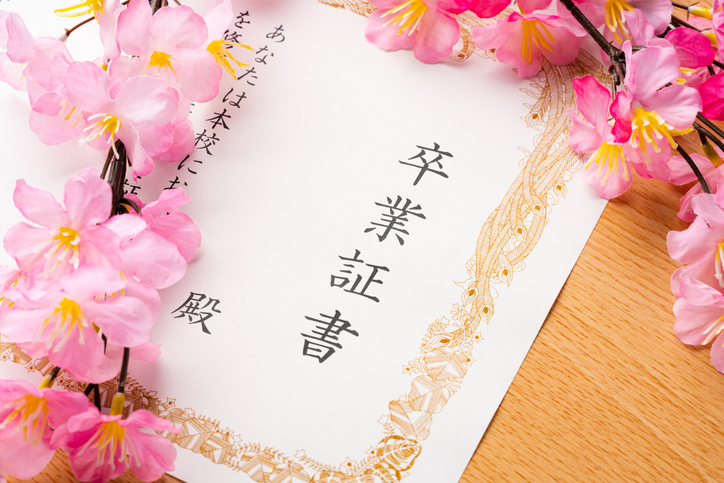 卒業証書
殿
あなたは本校にお
を修